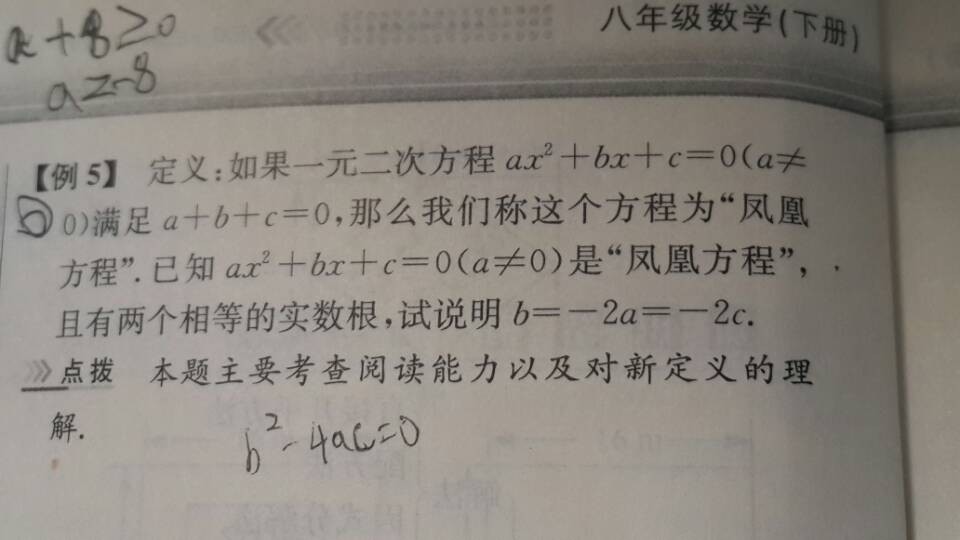 a+8≥0
a≥-8
八年级数学(下册)
【例5】 定义:如果一元二次方程 ax²+bx+c=0(a≠
0)满足 a+b+c=0,那么我们称这个方程为“凤凰
方程”.已知 ax²+bx+c=0(a≠0)是“凤凰方程”,
且有两个相等的实数根,试说明 b=-2a=-2c.
点拨 本题主要考查阅读能力以及对新定义的理
解.
b²-4ac=0